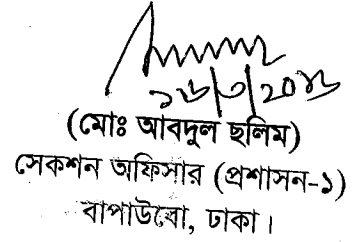 ১৬/৩/২০১৬
(মোঃ আবদুল ছলিম)
সেকশন অফিসার (প্রশাসন-১)
বাপাউবো, ঢাকা।